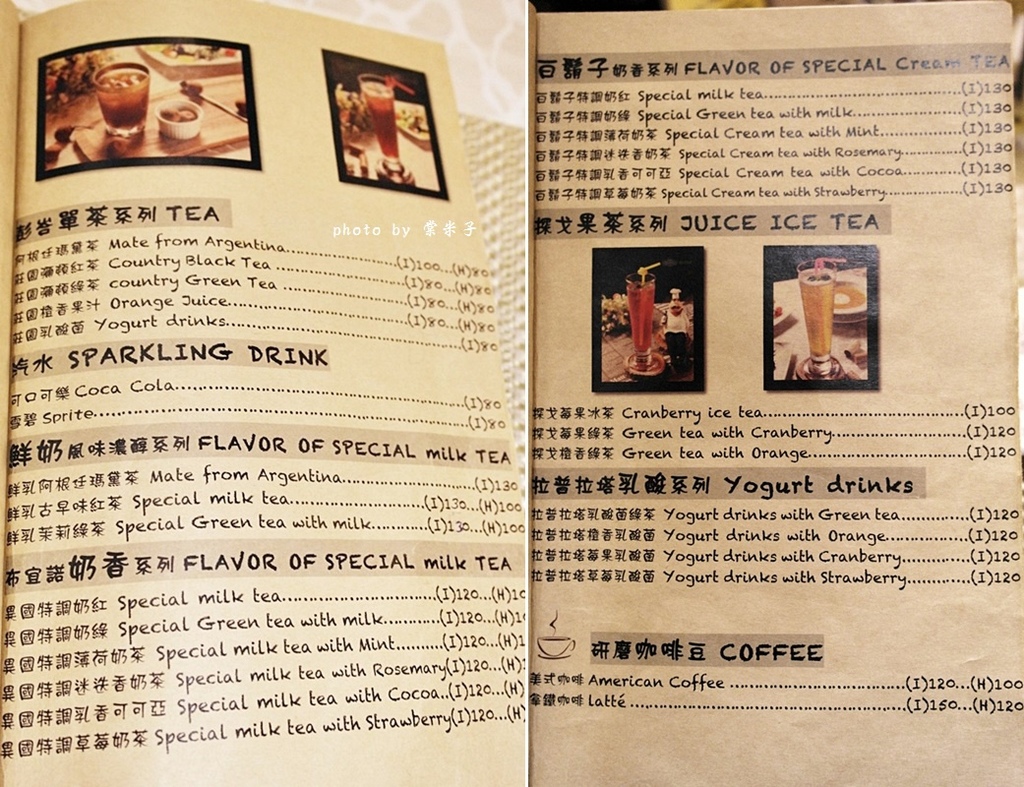 彭峇單茶系列 TEA
阿根廷瑪黛茶 Mate from Argentina.....(I)100...(H)80
莊園彌頓紅茶 Country Black Tea .....(I)80...(H)80
莊園彌頓綠茶 country Green Tea .....(I)80...(H)80
莊園橙香果汁 Orange Juice.....(I)80...(H)80
莊園乳酸菌 Yogurt drinks.....(I)80
photo by 棠米子
汽水 SPARKLING DRINK
可口可樂 Coca Cola.....(I)80
雪碧 Sprite.....(I)80
鮮奶風味濃醇系列 FLAVOR OF SPECIAL milk TEA
鮮乳阿根廷瑪黛茶 Mate from Argentina.....(I)130
鮮乳古早味紅茶 Special milk tea.....(I)130...(H)100
鮮乳茉莉綠茶 Special Green tea with milk.....(I)130...(H)100
布宜諾奶香系列 FLAVOR OF SPECIAL milk TEA
異國特調奶紅 Special milk tea.....(I)120...(H)1
異國特調奶綠 Special Green tea with milk.....(I)120...(H)1
異國特調薄荷奶茶 Special milk tea with Mint.....(I)120...(H)1
異國特調迷迭香奶茶 Special milk tea with Rosemary(I)120...(H)
異國特調乳香可可亞 Special milk tea with Cocoa..(I)120...(H)
異國特調草莓奶茶 Special milk tea with Strawberry(I)120...(H)
百鬍子奶香系列 FLAVOR OF SPECIAL Cream TEA
百鬍子特調奶紅 Special milk tea.....(I)130
百鬍子特調奶綠 Special Green tea with milk.....(I)130
百鬍子特調薄荷奶茶 Special Cream tea with Mint.....(I)130
百鬍子特調迷迭香奶茶 Special Cream tea with Rosemary.....(I)130
百鬍子特調乳香可可亞 Special Cream tea with Cocoa.....(I)130
百鬍子特調草莓奶茶 Special Cream tea with Strawberry.....(I)130
探戈果茶系列 JUICE ICE TEA
探戈莓果冰茶 Cranberry ice tea.....(I)100
探戈莓果綠茶 Green tea with Cranberry.....(I)120
探戈橙香綠茶 Green tea with Orange.....(I)120
拉普拉塔乳酸系列 Yogurt drinks
拉普拉塔乳酸菌綠茶 Yogurt drinks with Green tea.....(I)120
拉普拉塔橙香乳酸菌 Yogurt drinks with Orange.....(I)120
拉普拉塔莓果乳酸菌 Yogurt drinks with Cranberry.....(I)120
拉普拉塔草莓乳酸菌 Yogurt drinks with Strawberry.....(I)120
研磨咖啡豆 COFFEE
美式咖啡 American Coffee .....(I)120...(H)100
拿鐵咖啡 latté .....(I)150...(H)120